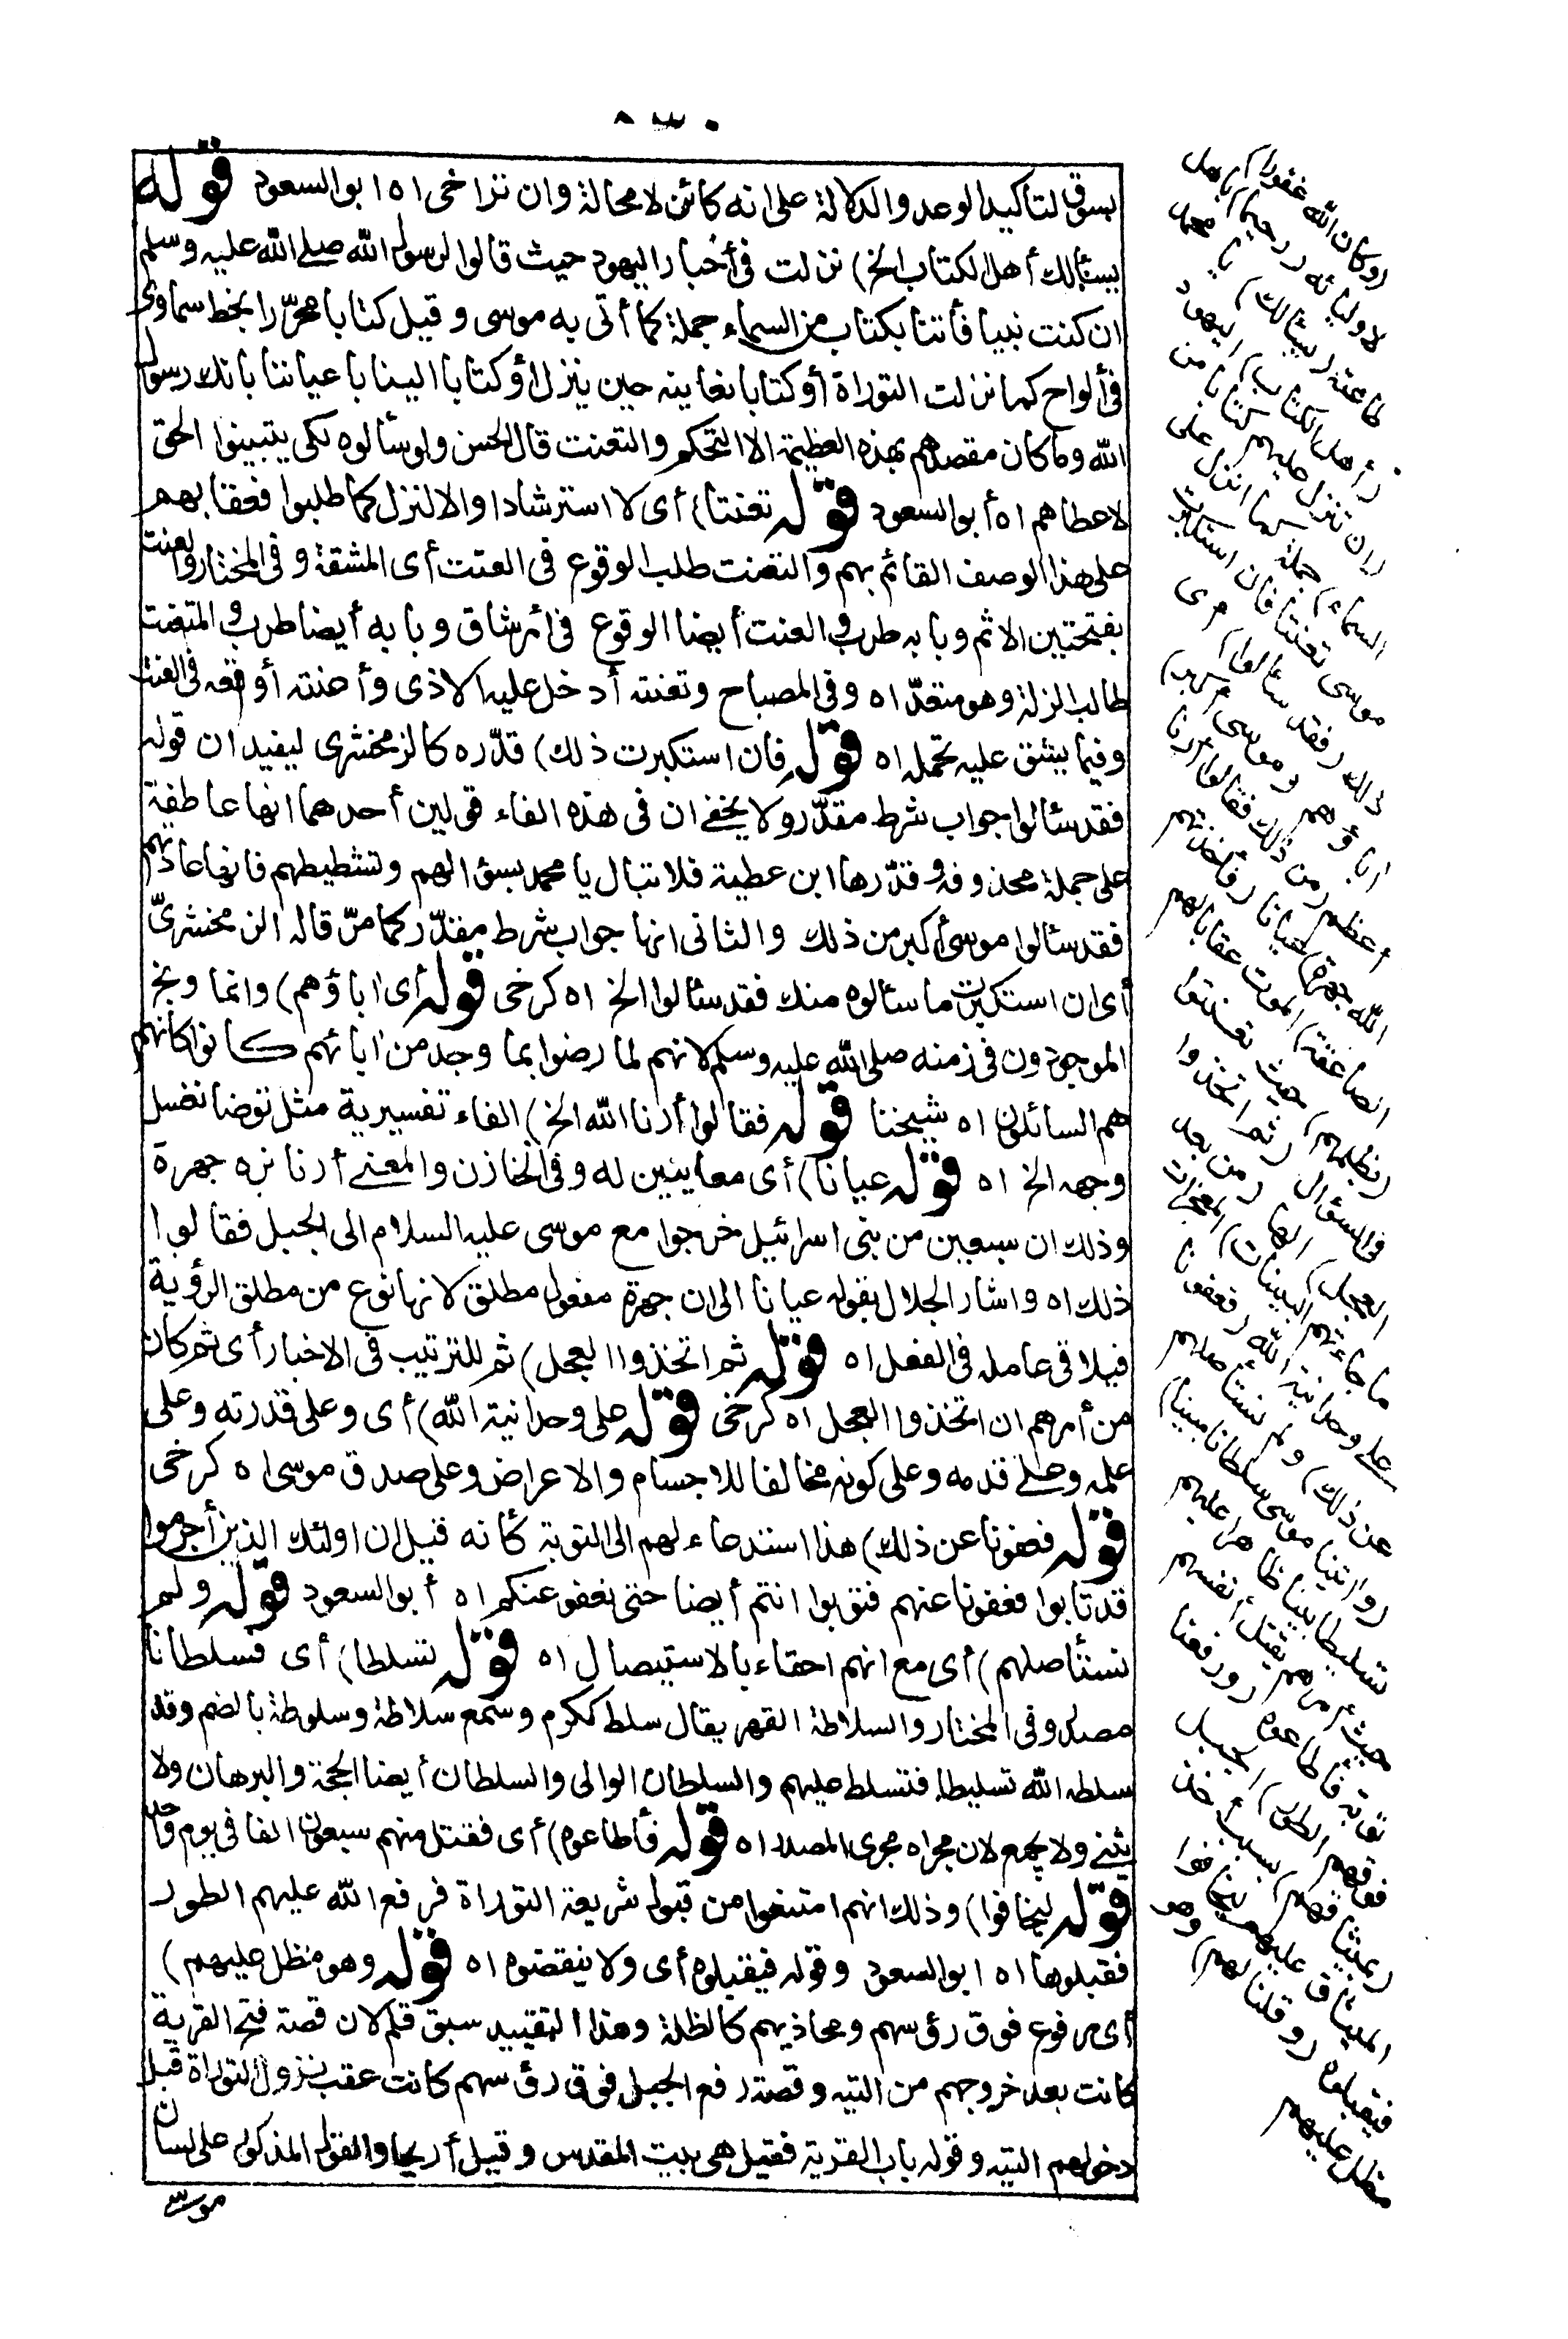 ٥٣٠
بسوق لتأكيد الوعد والدلالة على انه كائن لا محالة وان تراخى اه ابو السعود قوله
يسئالك أهل الكتاب الخ) نزلت فى أحبار اليهود حيث قالوا لرسول الله صلے الله عليه وسلم
ان كنت نبيا فأتنا بكتاب من السماء جملة كما أتى به موسى وقيل كتابا محررا بخط سماوى
فى ألواح كما نزلت التوراة أو كتابا نعاينه حين ينزل أو كتابا الينا باعياننا بانك رسول
الله وما كان مقصدهم بهذه العظيمة الا التحكم والتعنت قال الحسن ولو سئالوه لكى يتبينوا الحق
لاعطاهم اه أبو السعود قوله تعنتا) أى لا استرشادا والا لنزل كما طلبوا فعقابهم
على هذا الوصف القائم بهم والتعنت طلب الوقوع فى العنت أى المشقة وفى المختار والعنت
بفتحتين الاثم وبابه طرب والعنت أيضا الوقوع فى أمر شاق وبابه أيضا طرب والمتعنت
طالب الزلة وهو متعدّ اه وفى المصباح وتعنته أدخل عليه الاذى وأعنته أوقعه فى العنت
وفيما يشق عليه تحمله اه قوله فان استكبرت ذلك) قدّره كالزمخشرى ليفيد ان قوله
فقد سئالوا جواب شرط مقدّر ولا يخفے ان فى هذه الفاء قولين أحدهما انها عاطفة
على جملة محذوفة وقدّرها ابن عطية فلا تبال يا محمد بسؤالهم وتشطيطهم فانها عادتهم
فقد سئالوا موسى أكبر من ذلك والثانى انها جواب شرط مقدّر كما مرّ قاله الزمخشرىّ
أى ان استكبرت ما سئالوه منك فقد سئالوا الخ اه كرخى قوله أى اباؤهم) وانما وبخ
الموجودون فى زمنه صلى الله عليه وسلم لانهم لما رضوا بما وجد من ابائهم كانوا كانهم
هم السائلون اه شيخنا قوله فقالوا أرنا الله الخ) الفاء تفسيرية مثل توضا نغسل
وجهه الخ اه قوله عيانا) أى معاينين له وفى الخازن والمعنے أرنا نره جهرة
وذلك ان سبعين من بنى اسرائيل خرجوا مع موسى عليه السلام الى الجبل فقالوا
ذلك اه واشار الجلال بقوله عيانا الى ان جهرة مفعول مطلق لانها نوع من مطلق الرؤية
فيلاقى عامله فى الفعل اه قوله ثم اتخذوا العجل) ثم للترتيب فى الاخبار أى ثم كان
من أمرهم ان اتخذوا العجل اه كرخى قوله على وحدانية الله) أى وعلى قدرته وعلى
علمه وعلے قدمه وعلى كونه مخالفا للاجسام والاعراض وعلى صدق موسى اه كرخى
قوله فعفونا عن ذلك) هذا استدعاء لهم الى التوبة كأنه قيل ان اولئك الذين أجرموا
قد تابوا فعفونا عنهم فتوبوا انتم أيضا حتى نعفو عنكم اه أبو السعود قوله ولم
نستأصلهم) أى مع انهم احقاء بالاستيصال اه قوله تسلطا) أى فسلطانا
مصدر وفى المختار والسلاطة القهر يقال سلط ككرم وسمع سلاطة وسلوطة بالضم وقد
سلطه الله تسليطا فتسلط عليهم والسلطان الوالى والسلطان أيضا الحجة والبرهان ولا
يثنے ولا يجمع لان مجراه مجرى المصدر اه قوله فأطاعوه) أى فقتل منهم سبعون الفا فى يوم واحد
قوله ليخافوا) وذلك انهم امتنعوا من قبول شريعة التوراة فرفع الله عليهم الطور
فقبلوها اه ابو السعود وقوله فيقبلوه أى ولا ينقضوه اه قوله وهو مظل عليهم)
أى مرفوع فوق رؤسهم ومحاذيهم كالظلة وهذا التقييد سبق قلم لان قصة فتح القرية
كانت بعد خروجهم من التيه وقصة رفع الجبل فوق رؤسهم كانت عقب نزول التوراة قبل
دخولهم التيه وقوله باب القرية فقيل هى بيت المقدس وقيل أريحا والقول المذكور على لسان
موسے
(وكان الله غفورا)
لاوليائه (رحيما) باهل
طاعته (يسئالك) يا محمد
(أهل الكتاب) اليهود
(ان تنزل عليهم كتابا من
السماء) جملة كما انزل على
موسى تعنتا فان استكبرت
ذلك (فقد سئالوا) أى
اباؤهم (موسى أكبر)
أعظم (من ذلك فقالوا أرنا
الله جهرة) عيانا (فأخذتهم
الصاعقة) الموت عقابا لهم
(بظلمهم) حيث تعنتوا
فى السؤال (ثم اتخذوا
العجل) الها (من بعد
ما جاءتهم البينات) المعجزات
على وحدانية الله (فعفونا
عن ذلك) ولم نستأصلهم
(واتينا موسى سلطانا مبينا)
تسليطا بينا ظاهرا عليهم
حيث أمرهم بقتل أنفسهم
توبة فأطاعوه (ورفعنا
فوقهم الطور) الجبل
(بميثاقهم) بسبب أخذ
الميثاق عليهم ليخافوا
فيقبلوه (وقلنا لهم) وهو
مظل عليهم